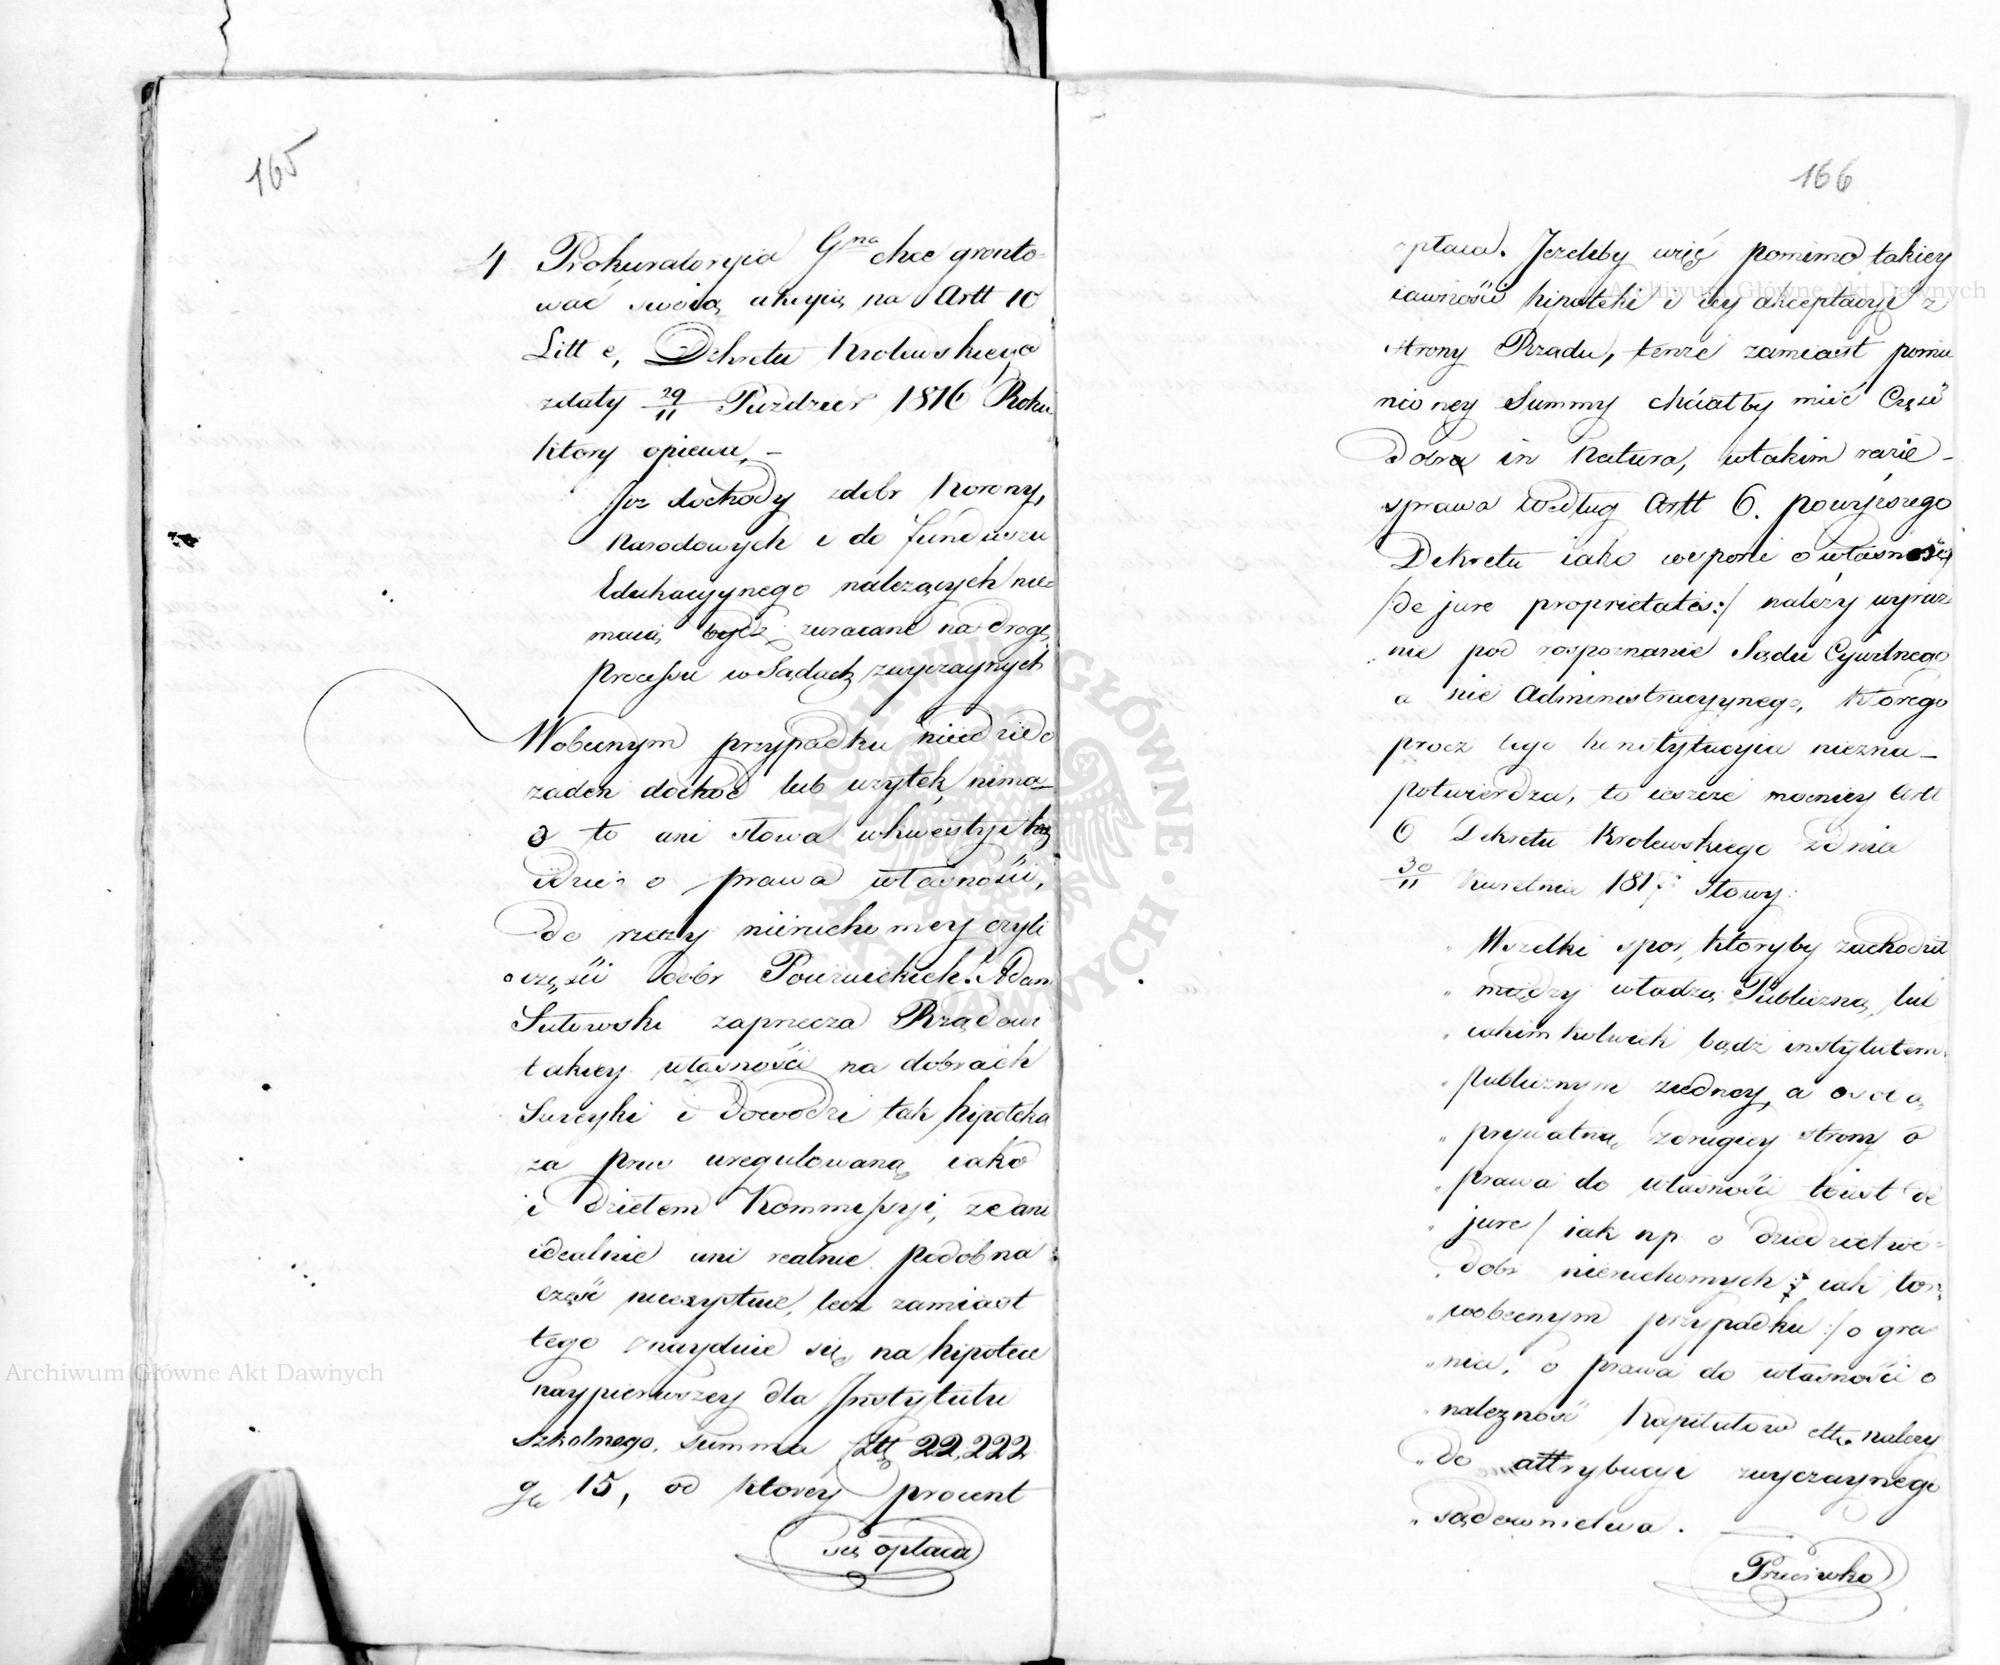 165
4 Prokuratoryia Gna chce gronto-
wać swoią akcyią na Artt 10
Litt e, Dekretu Krolewskiego
zdaty 29/11 Pazdzier 1816 Roku
ktory opiewa, –
Joz dochody zdobr Korony,
Narodowych i do funduszu
Edukacyynego nalezących nie-
maią bydz zwracane na drogę
Processu w Sądach zwyczaynych
Wobecnym przypadku nieidzie o
zaden dochod lub uzytek, nima-
o to ani słowa wkwestyi lecz
idzie o prawa własności,
do rzeczy nieruchomey czyli
części dobr Pouzuickich. Adam
Sutowski zaprzecza Rządowi
takiey własności na dobrach
Surcyki i dowodzi tak hipoteka
za pruu uregulowaną iako
i dziełem Kommissyi, ze ani
idealnie ani realnie podobna
część nieexystuie, lecz zamiast
tego znayduie się na hipotece
naypierwszey dla Instytutu
Szkolnego, summa Złł 22,222
gr 15, od ktorey procent
się opłaca
166
opłaca. Jezeliby więc pomimo takiey
iawności hipoteki i iey akceptacyi z
strony Rządu, tenze zamiast pomie
nioney Summy chciałby mieć Część
dobra in Natura, wtakim razie –
sprawa według Artt 6. powyzszego
Dekretu iako wsporze o własność
/:de jure proprietatis:/ należy wyraz
nie pod rospoznanie Sądu Cywilnego
a nie Administracyynego, Ktorego
procz tego konstytucyia niezna –
potwierdza, to ieszcze mocniey Artt
6 Dekretu Krolewskiego zdnia
30/11 Kwietnia 181 słowy:
Wszelki spor, ktoryby zachodził
„ między władzą Publiczną, lub
„ iakimkolwiek bądz instytutem
„ publicznym ziedney, a osobą
„ prywatną zdrugiey strony o
„ prawa do własności toiest de
„ jure / iak np. o dziedzictwo
„ dobr nieruchomych iak to
„ wobecnym przypadku :/ o gra
„ nice, o prawa do własności o
„ należność Kapitałow ett. nalezy
„ do attrybucyi zwyczaynego
„ sądownictwa.
Przeciwko
Archiwum Główne Akt Dawnych
Archiwum Główne Akt Dawnych
ARCHIWUM GŁÓWNE AKT DAWNYCH